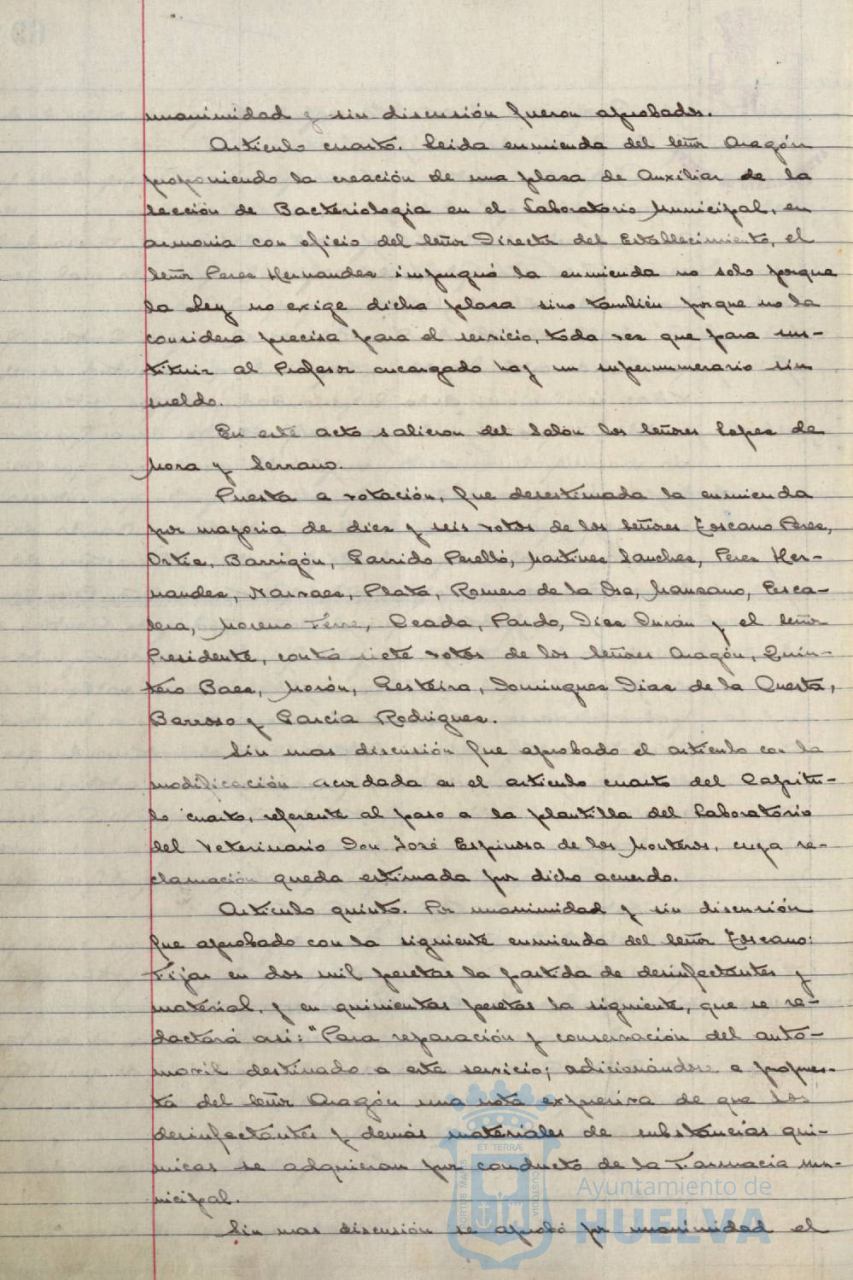 unanimidad y sin discusión fueron aprobados.
Artículo cuarto. Leida enmienda del Señor Aragón
proponiendo la creación de una plasa de Auxiliar de la
Sección de Bacteriología en el Laboratorio Municipal, en
armonia con oficio del Señor Director del Establecimiento, el
Señor Peres Hernandes impugnó la enmienda no solo porque
la Ley no exige dicha plasa sino también porque no la
considera precisa para el servicio, toda ves que para sus-
tituir al Profesor encargado hay un supernumerario sin
sueldo.
En este acto salieron del Salón los Señores Lopes de
Mora y Serrano.
Puesta a votación, fue desestimada la enmienda
por mayoria de dies y seis votos de los Señores Toscano Peres,
Ortis, Barrigón, Garrido Perelló, Martines Sanches, Peres Her-
nandes, Narvaes, Plata, Romero de la Osa, Mansano, Esca-
lera, Moreno Ferre, Ceada, Pardo, Dies Durán y el Señor
Presidente, contra siete votos de los Señores Aragón, Quin-
tero Baes, Morón, Gesteira, Domingues Dias de la Questa,
Barroso y García Rodrigues.
Sin mas discusión fue aprobado el artículo con la
modificación acordada en el artículo cuarto del Capítu-
lo cuarto, referente al paso a la plantilla del Laboratorio
del Veterinario Don José Espinosa de los Monteros, cuya re-
clamación queda estimada por dicho acuerdo.
Artículo quinto. Por unanimidad y sin discusión
fue aprobado con la siguiente enmienda del Señor Toscano:
Fijar en dos mil pesetas la partida de desinfectantes y
material, y en quinientas pesetas la siguiente, que se re-
dactará asi: "Para reparación y conservación del auto-
movil destinado a este servicio; adicionándose a propues-
ta del Señor Aragón una nota expresiva de que los
desinfectantes y demás materiales de substancias quí-
micas se adquieran por conducto de la Farmacia mu-
nicipal.
Sin mas discusión se aprobó por unanimidad el
Ayuntamiento de
HUELVA